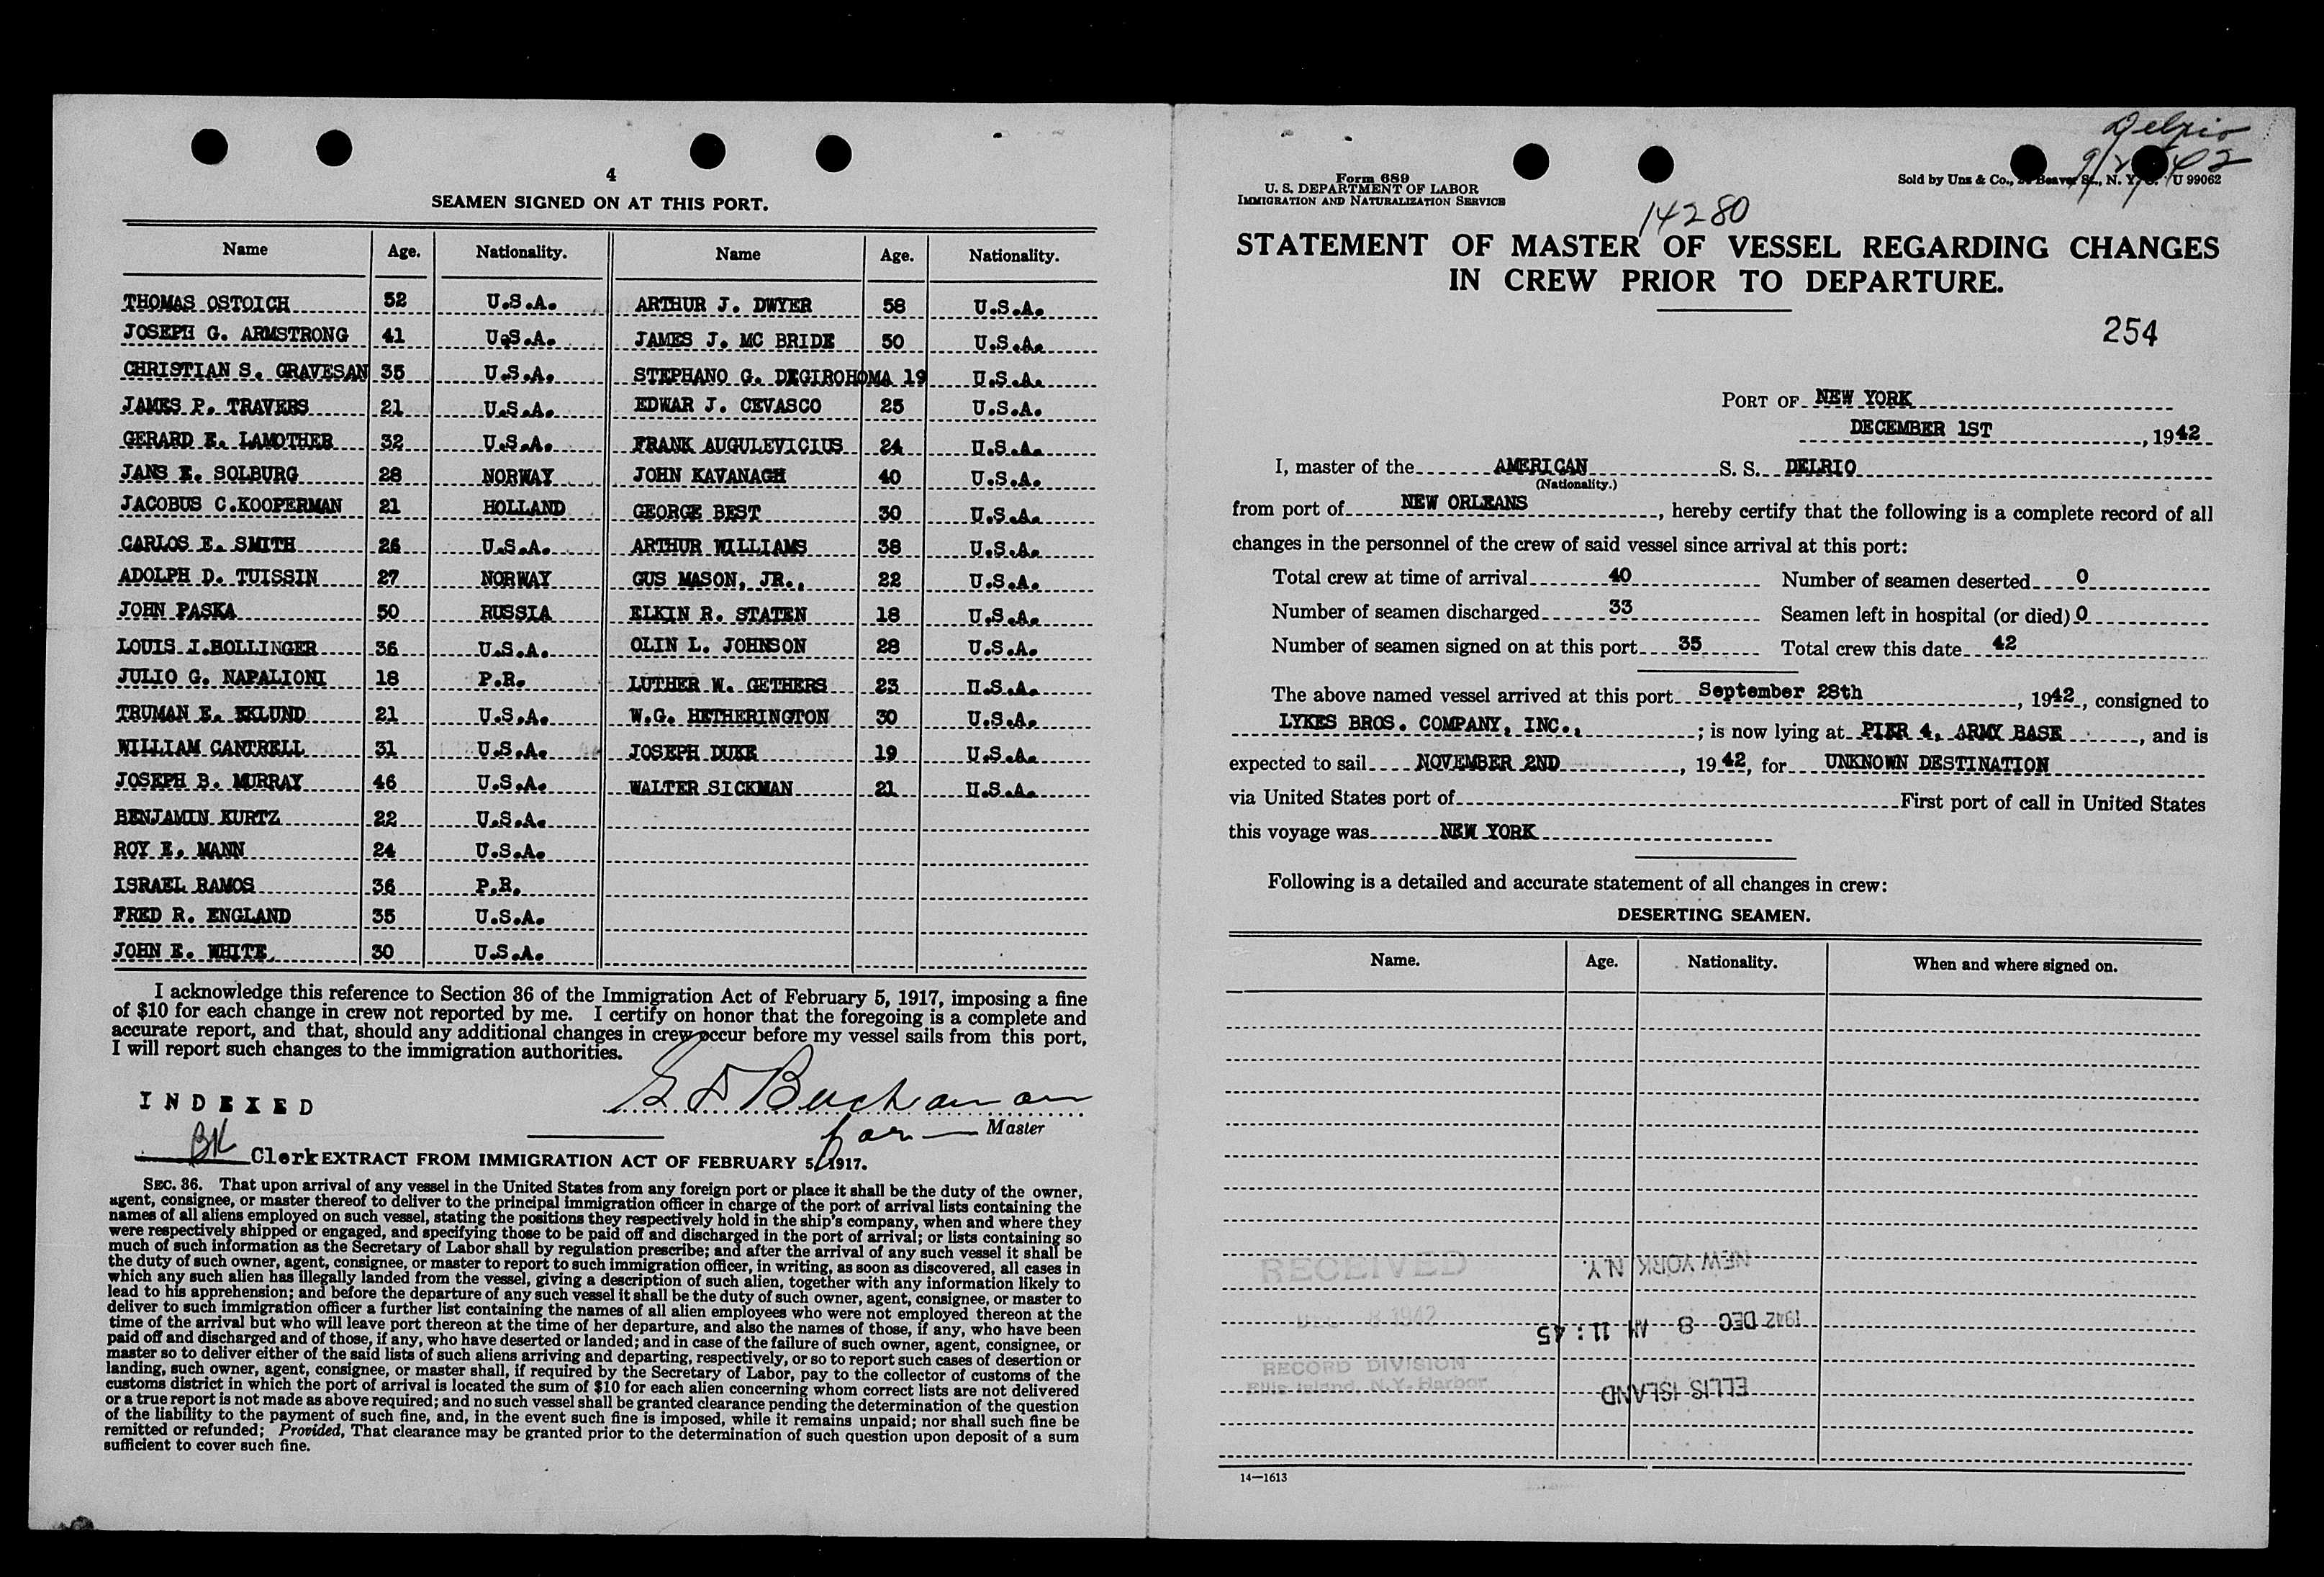 4
SEAMEN SIGNED ON AT THIS PORT.
Name Age. Nationality. Name Age. Nationality.
THOMAS OSTOICH 52 U.S.A. ARTHUR J. DWYER 58 U.S.A.
JOSEPH G. ARMSTRONG 41 U.S.A. JAMES J. MC BRIDE 50 U.S.A.
CHRISTIAN S. GRAVESAN 35 U.S.A. STEPHANO G. DEGIROHOMA 19 U.S.A.
JAMES P. TRAVERS 21 U.S.A. EDWAR J. CEVASCO 25 U.S.A.
GERARD E. LAMOTHER 32 U.S.A. FRANK AUGULEVICIUS 24 U.S.A.
JANS E. SOLBURG 28 NORWAY JOHN KAVANAGH 40 U.S.A.
JACOBUS C.KOOPERMAN 21 HOLLAND GEORGE BEST 30 U.S.A.
CARLOS E. SMITH 26 U.S.A. ARTHUR WILLIAMS 38 U.S.A.
ADOLPH D. TUISSIN 27 NORWAY GUS MASON, JR., 22 U.S.A.
JOHN PASKA 50 RUSSIA ELKIN R. STATEN 18 U.S.A.
LOUIS I.HOLLINGER 36 U.S.A. OLIN L. JOHNSON 28 U.S.A.
JULIO G. NAPALIONI 18 P.R. LUTHER W. GETHERS 23 U.S.A.
TRUMAN E. EKLUND 21 U.S.A. W.G. HETHERINGTON 30 U.S.A.
WILLIAM CANTRELL 31 U.S.A. JOSEPH DUKE 19 U.S.A.
JOSEPH B. MURRAY 46 U.S.A. WALTER SICKMAN 21 U.S.A.
BENJAMIN KURTZ 22 U.S.A.
ROY E. MANN 24 U.S.A.
ISRAEL RAMOS 36 P.R.
FRED R. ENGLAND 35 U.S.A.
JOHN E. WHITE 30 U.S.A.
I acknowledge this reference to Section 36 of the Immigration Act of February 5, 1917, imposing a fine
of $10 for each change in crew not reported by me. I certify on honor that the foregoing is a complete and
accurate report, and that, should any additional changes in crew occur before my vessel sails from this port,
I will report such changes to the immigration authorities.
Buchanan
INDEXED
for Master
BK Clerk
EXTRACT FROM IMMIGRATION ACT OF FEBRUARY 5, 1917.
SEC. 36. That upon arrival of any vessel in the United States from any foreign port or place it shall be the duty of the owner,
agent, consignee, or master thereof to deliver to the principal immigration officer in charge of the port of arrival lists containing the
names of all aliens employed on such vessel, stating the positions they respectively hold in the ship's company, when and where they
were respectively shipped or engaged, and specifying those to be paid off and discharged in the port of arrival; or lists containing so
much of such information as the Secretary of Labor shall by regulation prescribe; and after the arrival of any such vessel it shall be
the duty of such owner, agent, consignee, or master to report to such immigration officer, in writing, as soon as discovered, all cases in
which any such alien has illegally landed from the vessel, giving a description of such alien, together with any information likely to
lead to his apprehension; and before the departure of any such vessel it shall be the duty of such owner, agent, consignee, or master to
deliver to such immigration officer a further list containing the names of all alien employees who were not employed thereon at the
time of the arrival but who will leave port thereon at the time of her departure, and also the names of those, if any, who have been
paid off and discharged and of those, if any, who have deserted or landed; and in case of the failure of such owner, agent, consignee, or
master so to deliver either of the said lists of such aliens arriving and departing, respectively, or so to report such cases of desertion or
landing, such owner, agent, consignee, or master shall, if required by the Secretary of Labor, pay to the collector of customs of the
customs district in which the port of arrival is located the sum of $10 for each alien concerning whom correct lists are not delivered
or a true report is not made as above required; and no such vessel shall be granted clearance pending the determination of the question
of the liability to the payment of such fine, and, in the event such fine is imposed, while it remains unpaid; nor shall such fine be
remitted or refunded; Provided, That clearance may be granted prior to the determination of such question upon deposit of a sum
sufficient to cover such fine.
Delrio
Form 689
U. S. DEPARTMENT OF LABOR
IMMIGRATION AND NATURALIZATION SERVICE
Sold by Unz & Co., Beaver St., N. Y. U 99062
14280
STATEMENT OF MASTER OF VESSEL REGARDING CHANGES
IN CREW PRIOR TO DEPARTURE.
254
PORT OF NEW YORK
DECEMBER 1ST, 1942
I, master of the AMERICAN S. S. DELRIO
(Nationality.)
from port of NEW ORLEANS, hereby certify that the following is a complete record of all
changes in the personnel of the crew of said vessel since arrival at this port:
Total crew at time of arrival 40 Number of seamen deserted 0
Number of seamen discharged 33 Seamen left in hospital (or died) 0
Number of seamen signed on at this port 35 Total crew this date 42
The above named vessel arrived at this port September 28th, 1942, consigned to
LYKES BROS. COMPANY, INC.,; is now lying at PIER 4, ARMY BASE, and is
expected to sail NOVEMBER 2ND, 1942, for UNKNOWN DESTINATION
via United States port of First port of call in United States
this voyage was NEW YORK
Following is a detailed and accurate statement of all changes in crew:
DESERTING SEAMEN.
Name. Age. Nationality. When and where signed on.
RECEIVED
DEC 8 1942
RECORD DIVISION
Ellis Island, N.Y. Harbor
ELLIS ISLAND
1942 DEC 8 AM 11:45
NEW YORK N.Y.
14—1613